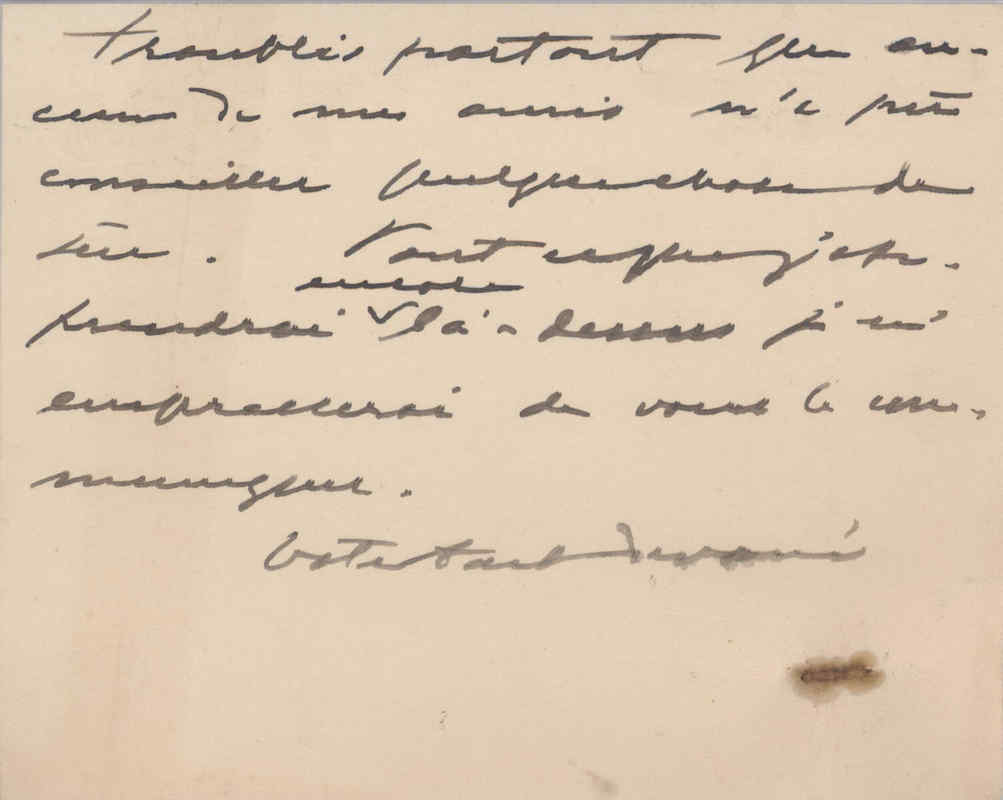 troublés partout que au-
cun de mes amis n'a pu
conseiller quelque chose de
sûr. Tout ce que j'ap-
encore
prendrai là-dessus je m'
empresserai de vous le com-
muniquer.
Votre tout dévoué